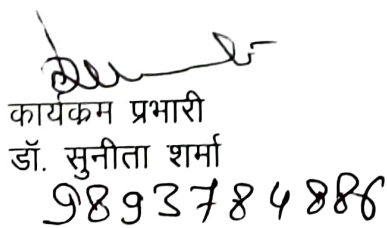 कार्यकम प्रभारी
डॉ. सुनीता शर्मा
9893784886